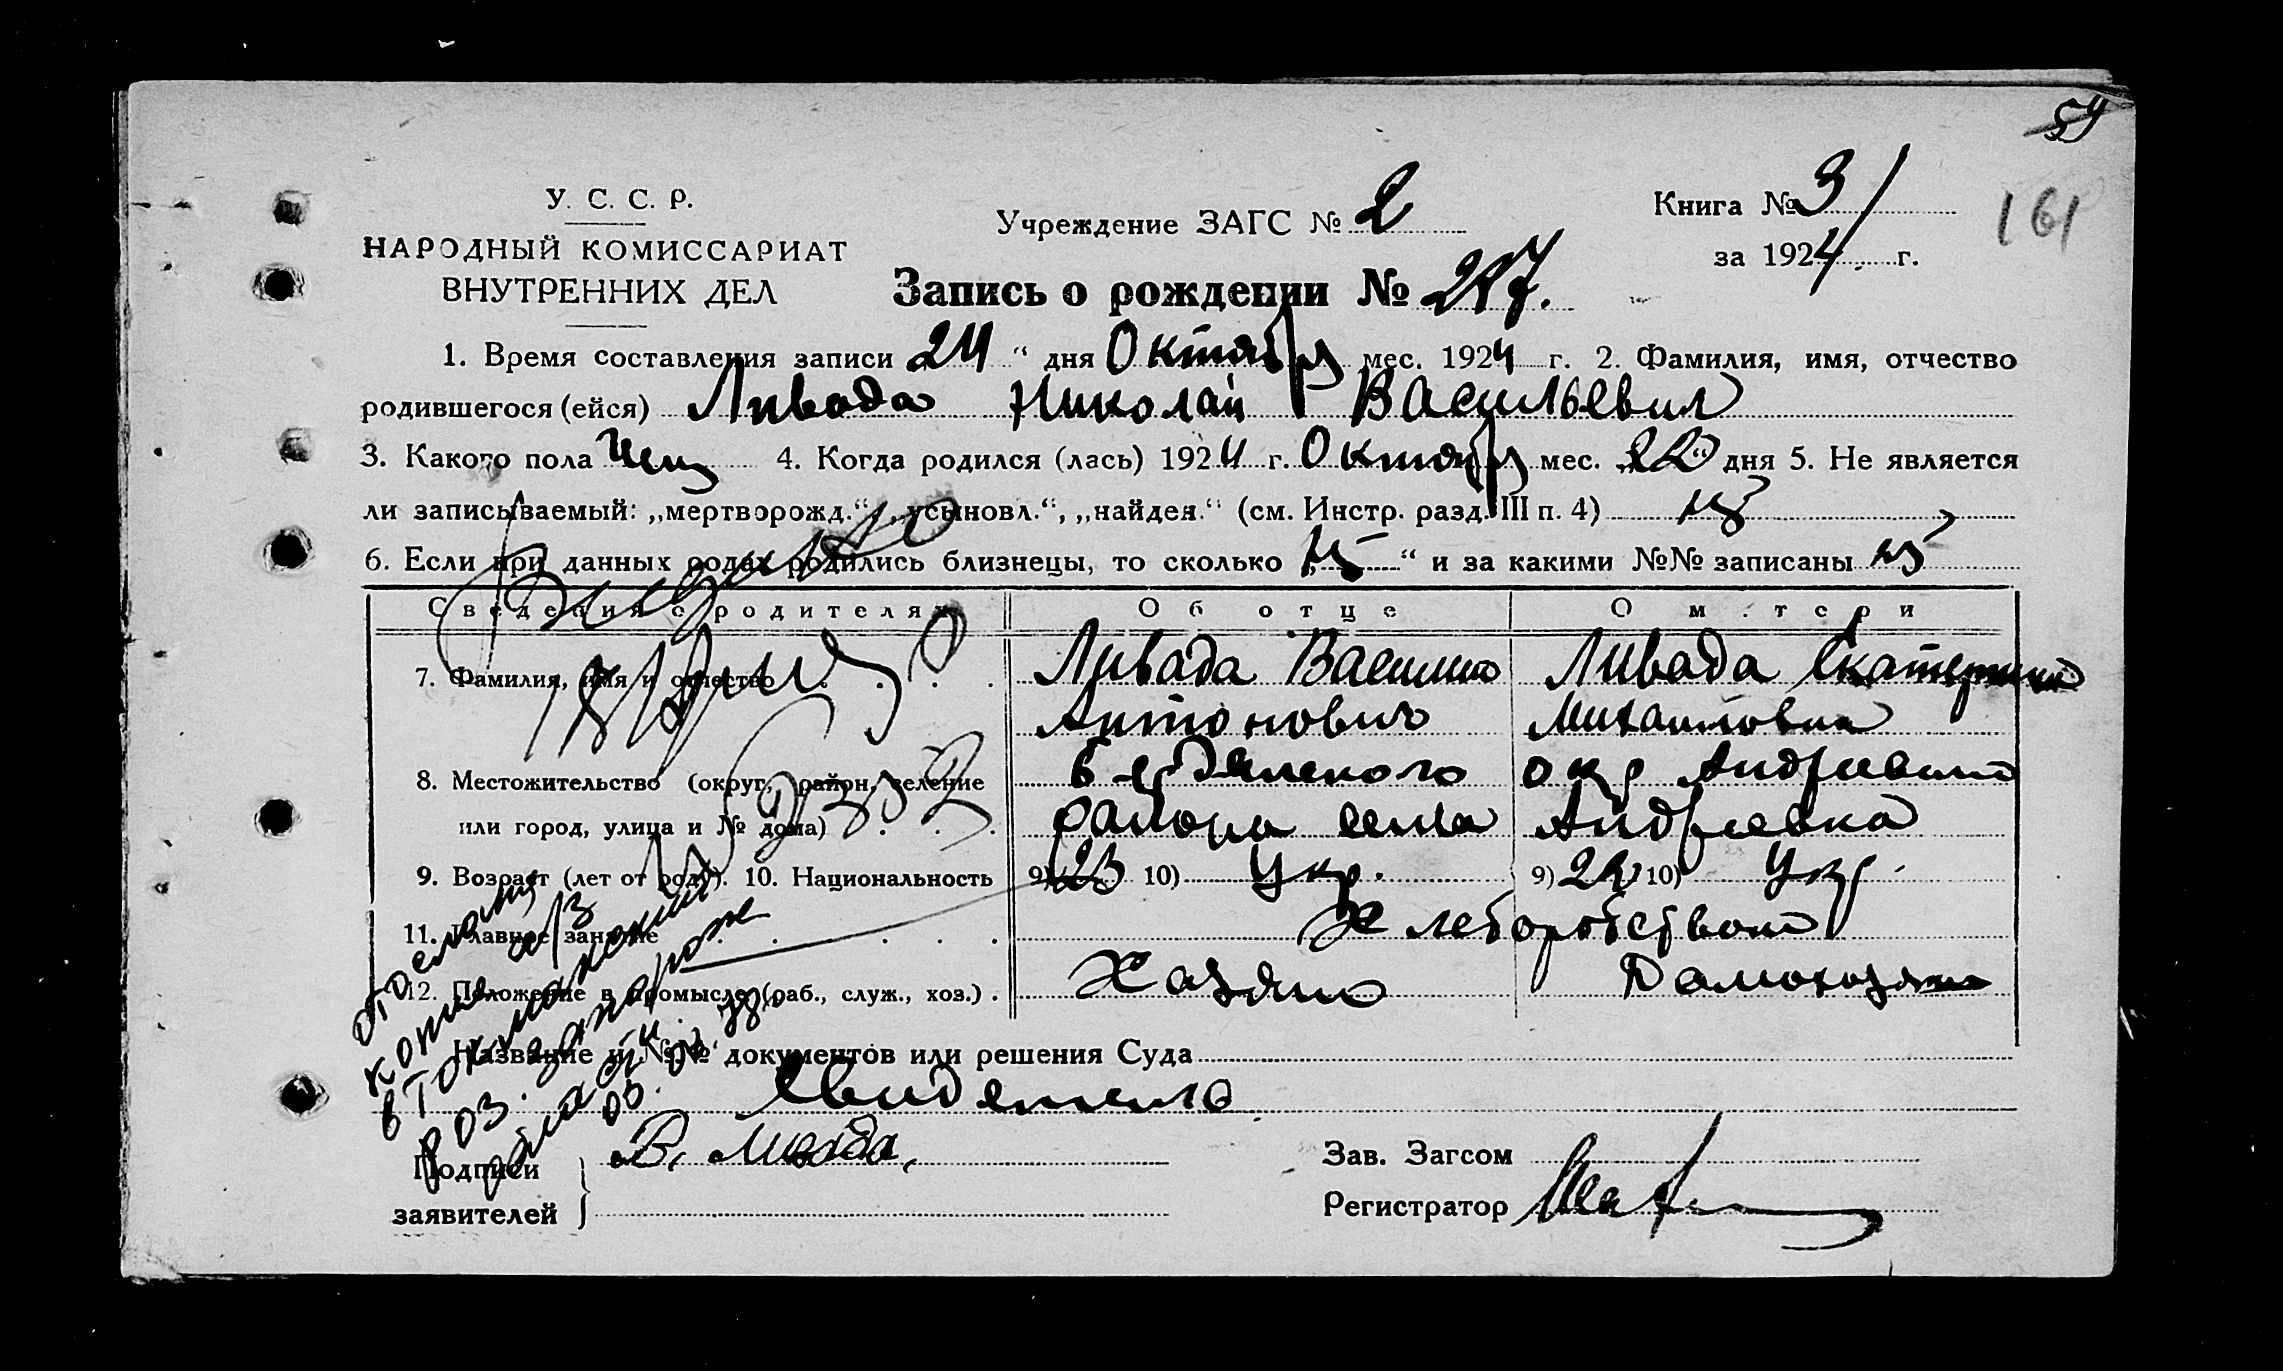 54
У. С. С. Р.
Учреждение ЗАГС № 2
Книга № 3
161
НАРОДНЫЙ КОМИССАРИАТ
за 1924 г.
ВНУТРЕННИХ ДЕЛ
Запись о рождении №
1. Время составления записи 24 “ дня Октября мес. 1924 г. 2. Фамилия, имя, отчество
родившегося (ейся) Ливада Николай Васильевич
3. Какого пола 4. Когда родился (лась) 1924 г. Октября мес. „20“ дня 5. Не является
ли записываемый: „мертворожд.“, „усыновл.“, „найден.“ (см. Инстр. разд. III п. 4)
6. Если при данных родах родились близнецы, то сколько „ “ и за какими №№ записаны
Сведения о родителях
Об отце
О матери
7. Фамилия, имя и отчество
Ливада Василий
Ливада Екатерина
Антонович
Михайловна
8. Местожительство (округ, район, селение
Бердянского
окр Андреевский
или город, улица и № дома)
района села
Андреевка
9. Возраст (лет от роду). 10. Национальность
9) 23 10) Укр.
9) 22 10) Укр.
11. Главное занятие
Хлеборобством
12. Положение в промысле (раб., служ., хоз.)
Хазяин
Название и №№ документов или решения Суда
Свидетели
Подписи
В. Ливада
Зав. Загсом
заявителей
Регистратор
отослано
копие а/з
в Токмакский
роз. Запорож
области